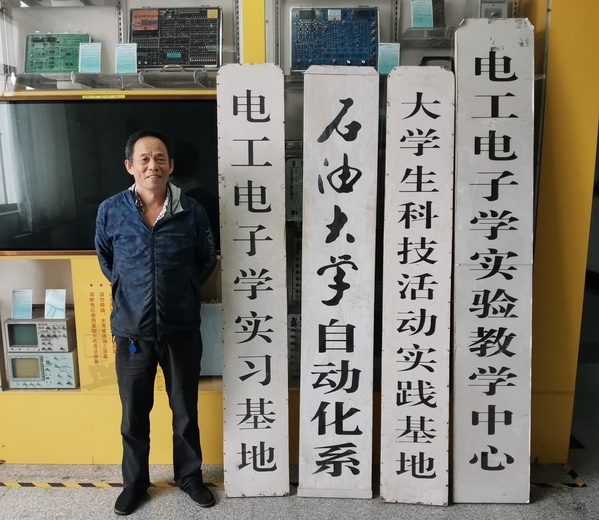 电工电子学实习基地
石油大学自动化系
大学生科技活动实践基地
电工电子学实验教学中心